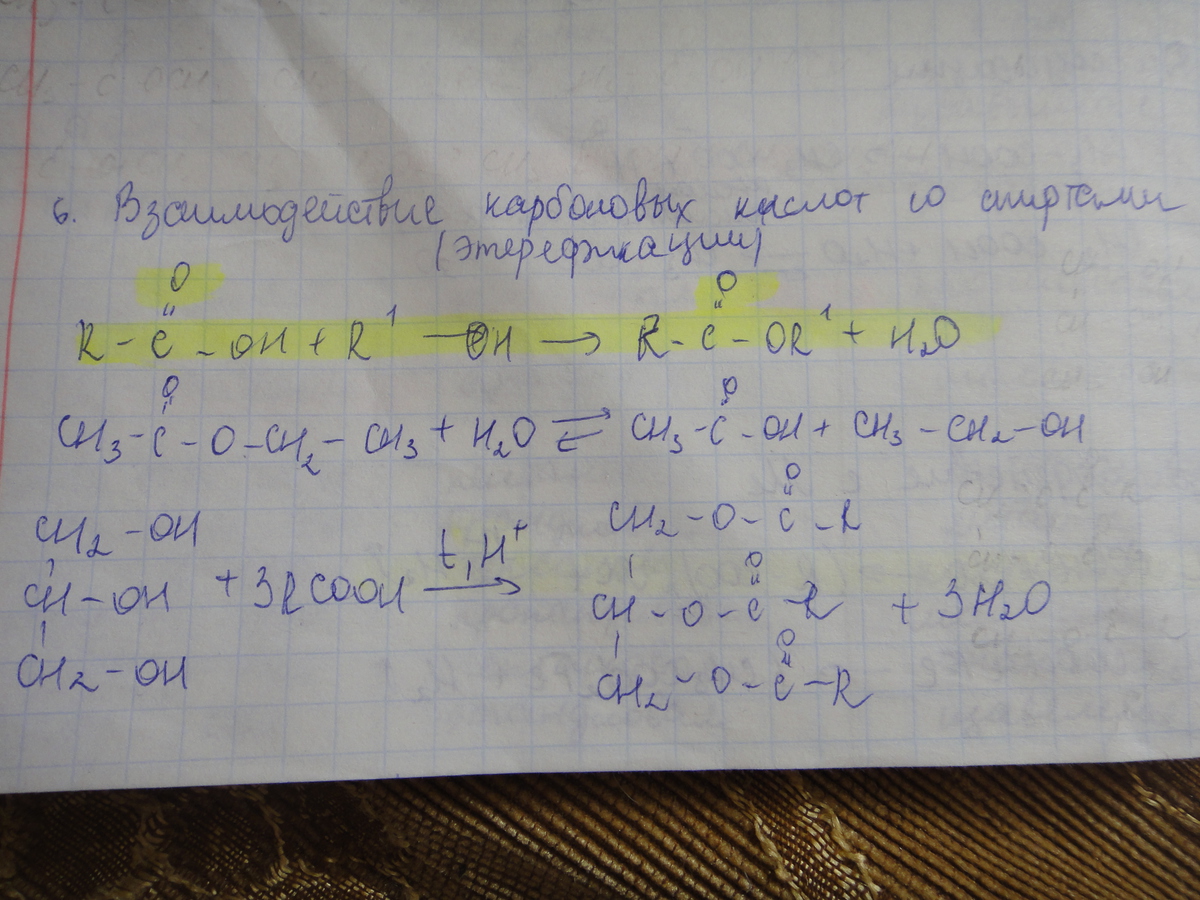 6. Взаимодействие карбоновых кислот со спиртами
(этерефикации)
O
O
R - C - OH + R¹ - OH → R - C - OR¹ + H₂O
O
O
CH₃ - C - O - CH₂ - CH₃ + H₂O ⇄ CH₃ - C - OH + CH₃ - CH₂ - OH
O
CH₂ - OH
CH₂ - O - C - R
O
CH - OH + 3RCOOH t, H⁺ →
CH - O - C - R + 3H₂O
O
CH₂ - OH
CH₂ - O - C - R